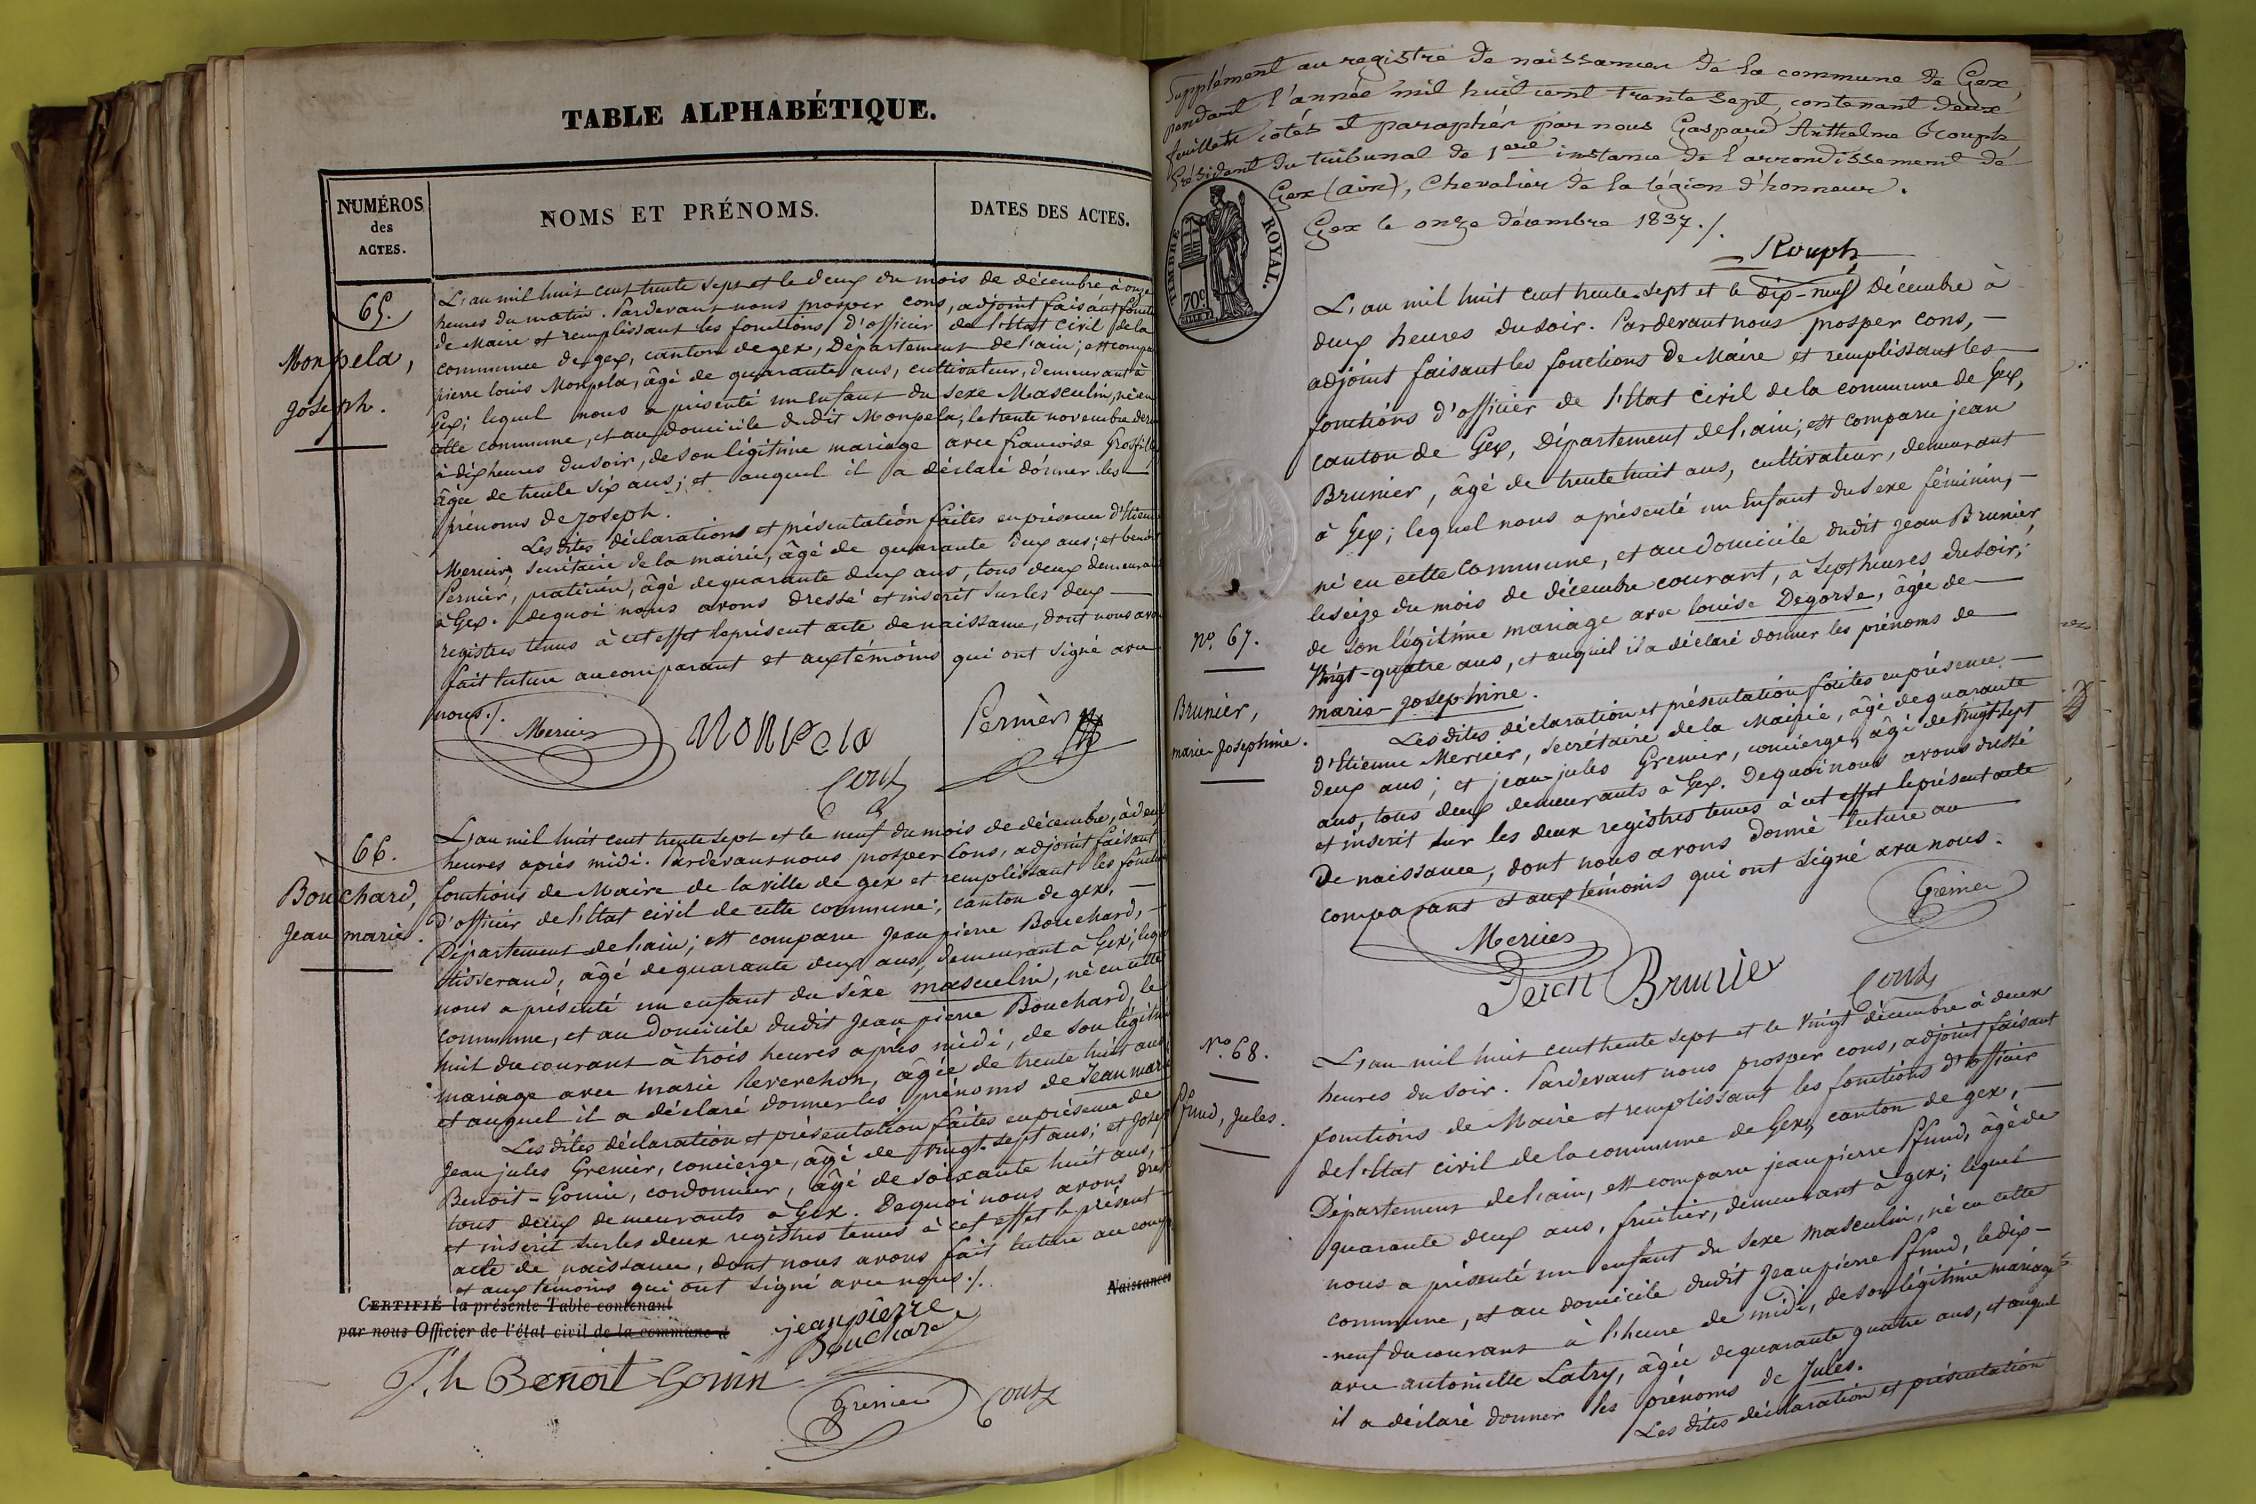 TABLE ALPHABÉTIQUE.
NUMÉROS
des
ACTES.
NOMS ET PRÉNOMS.
DATES DES ACTES.
65.
Monpela,
joseph.
L'an mil huit cent trente sept et le deux du mois de décembre à onze
heures du matin. Pardevant nous prosper cons, adjoint faisant
de Maire et remplissant les fonctions d'officier de l'état civil de la
commune de gex, canton de gex, Département de l'ain; est
pierre louis Monpela, âgé de quarante ans, cultivateur, demeurant à
Gex; lequel nous a présenté un Enfant du sexe Masculin, né en
cette commune, et au domicile dudit Monpela, le trente novembre
à dix heures du soir, de son légitime mariage avec francoise
âgée de trente six ans; et auquel il a déclaré donner les
prénoms de joseph.
Les dites déclarations et présentation faites en présence
Mercier, secrétaire de la mairie, âgé de quarante deux ans; et
Pernier, praticien, âgé de quarante deux ans, tous deux
à Gex. Dequoi nous avons dressé et inscrit sur les deux
registres tenus à cet effet le présent acte de naissance, dont nous
fait lecture au comparant et aux témoins qui ont signé avec
nous./.
Mercier Monpela Pernier
Cons
66.
Bouchard,
jean marie.
L'an mil huit cent trente sept et le neuf du mois de décembre, à deux
heures après midi. Pardevant nous prosper Cons, adjoint faisant
fonctions de Maire de la ville de gex et remplissant les
d'officier de l'état civil de cette commune; canton de gex,
Département de l'ain; est comparu jean pierre Bouchard,
tisserand, âgé de quarante deux ans, demeurant à Gex;
nous a présenté un enfant du sexe masculin, né en cette
commune, et au domicile dudit jean pierre Bouchard, le
huit du courant à trois heures après midi, de son
mariage avec marie Reverchon, âgée de trente huit ans
et auquel il a déclaré donner les prénoms de jean marie
Les dites déclaration et présentation faites en présence de
jean jules Grenier, concierge, âgé de vingt sept ans; et
Benoit-Gonin, cordonnier, âgé de soixante huit ans,
tous deux demeurants à Gex. Dequoi nous avons
et inscrit sur les deux registres tenus à cet effet le présent
acte de naissance, dont nous avons fait lecture au
et aux témoins qui ont signé avec nous./.
Naissances
CERTIFIÉ la présente Table contenant
par nous Officier de l'état civil de la commune d
jean pierre
Bouchard
Benoit Gonin
Grenier Cons
Supplément au registre de naissances de la commune de Gex,
pendant l'année mil huit cent trente sept, contenant deux
feuillets cotés et paraphés par nous Gaspard Anthelme Rouph
Président du tribunal de 1ere instance de l'arrondissement de
Gex (ain), Chevalier de la légion d'honneur.
Gex le onze décembre 1837./.
Rouph
TIMBRE ROYAL.
70c
L'an mil huit cent trente-sept et le dix-neuf décembre à
deux heures du soir. Pardevant nous prosper cons,
adjoint faisant les fonctions de Maire et remplissant les
fonctions d'officier de l'état civil de la commune de Gex,
canton de Gex, Département de l'ain; est comparu jean
Brunier, âgé de trente huit ans, cultivateur, demeurant
à Gex; lequel nous a présenté un Enfant du sexe féminin,
né en cette commune, et au domicile dudit jean Brunier,
le seize du mois de décembre courant, à sept heures du soir,
de son légitime mariage avec louise Degorse, âgée de
vingt-quatre ans, et auquel il a déclaré donner les prénoms de
marie-josephine.
No. 67.
Brunier,
marie-josephine.
Les dites déclaration et présentation faites en présence
d'Etienne Mercier, secrétaire de la Mairie, âgé de quarante
deux ans; et jean-jules Grenier, concierge, âgé de vingt-sept
ans, tous deux demeurants à Gex. Dequoi nous avons dressé
et inscrit sur les deux registres tenus à cet effet le présent acte
De naissance, dont nous avons donné lecture au
comparant et aux témoins qui ont signé avec nous.
Grenier
Mercier
Jean Brunier
Cons
No. 68.
Pfund, jules.
L'an mil huit cent trente sept et le vingt décembre à deux
heures du soir. Pardevant nous prosper cons, adjoint faisant
fonctions de Maire et remplissant les fonctions d'officier
de l'état civil de la commune de Gex, canton de gex,
Département de l'ain, est comparu jean pierre Pfund, âgé de
quarante deux ans, fruitier, demeurant à gex; lequel
nous a présenté un enfant du sexe masculin, né en cette
commune, et au domicile dudit jean pierre Pfund, le dix-
-neuf du courant à l'heure de midi, de son légitime mariage
avec antoinette Latry, âgée de quarante quatre ans, et auquel
il a déclaré donner les prénoms de Jules.
Les dites déclaration et présentation